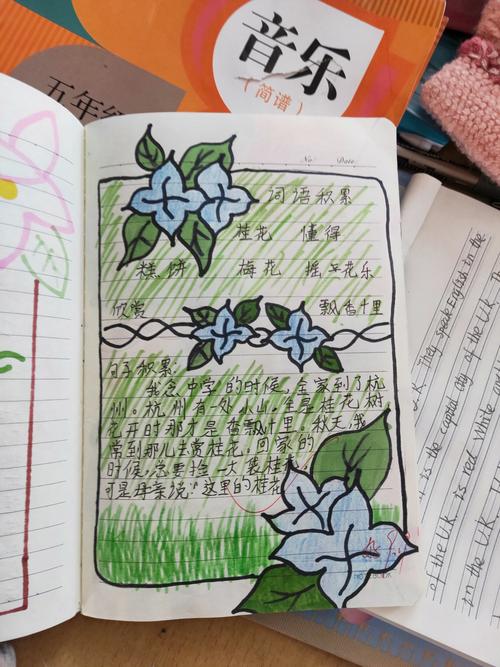 音乐
（简谱）
五年级
No.
Date.
词语积累
桂花 懂得
糕饼 梅花 摇花乐
欣赏 飘香十里
句子积累:
我念中学的时候，全家到了杭
州。杭州有一处小山，全是桂花树，
花开时那才是香飘十里。秋天，我
常到那儿去赏桂花。回家的
时候，总要捡一大袋桂花
可是母亲说:“这里的桂花
They speak English in the
U.K.
is the capital city of the U.K.
of the U.K. is red White
in the U.K.